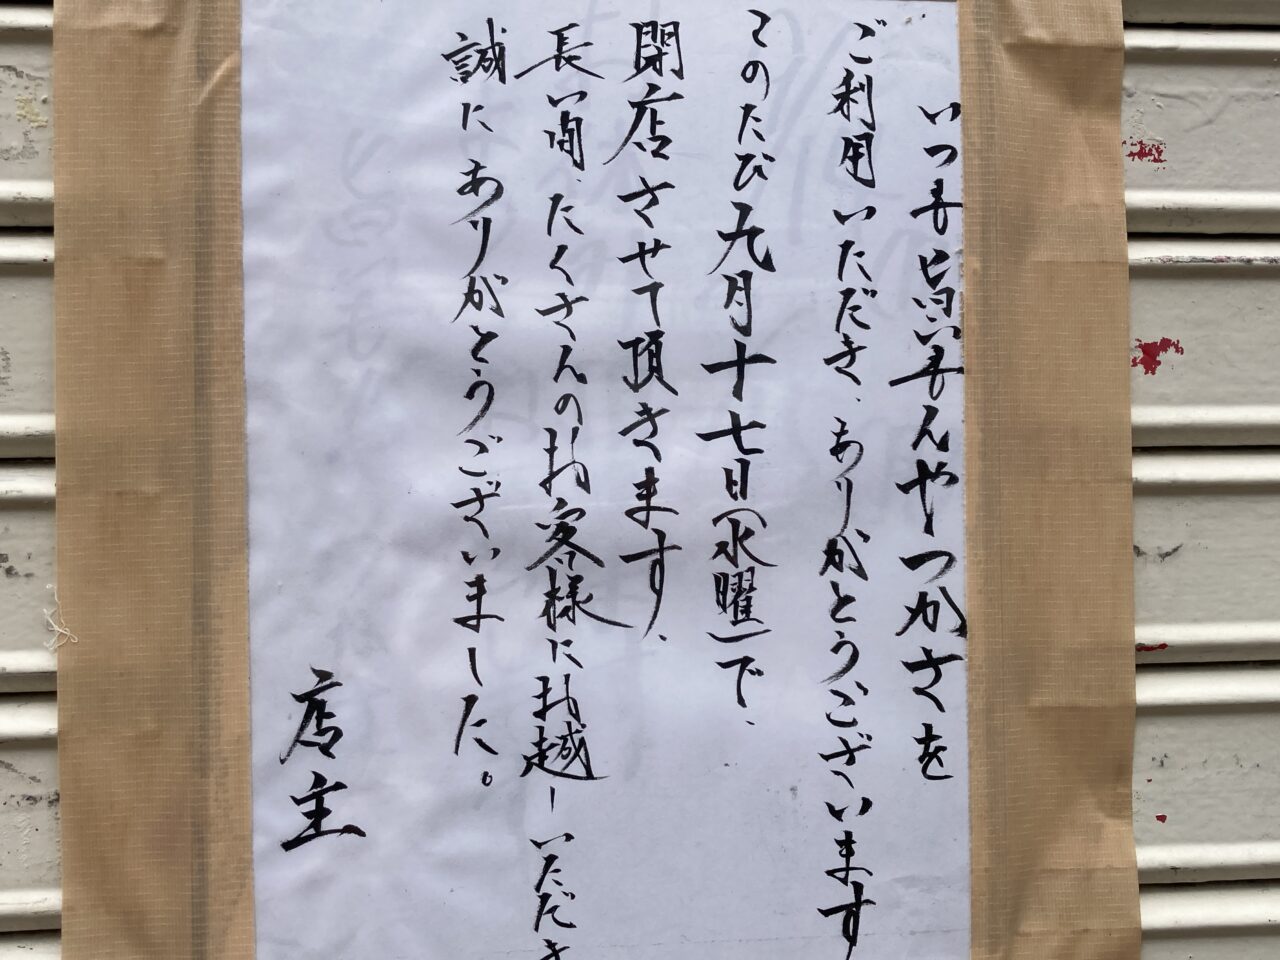 いつも旨いもんやつかさを
ご利用いただき、ありがとうございます
このたび九月十七日(水曜)で、
閉店させて頂きます、
長い間、たくさんのお客様にお越しいただき
誠に、ありがとうございました。
店主